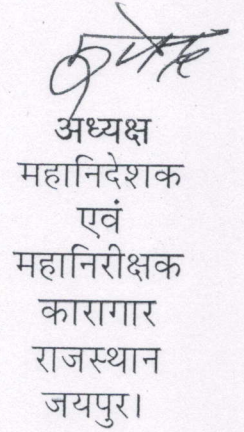 अध्यक्ष
महानिदेशक
एवं
महानिरीक्षक
कारागार
राजस्थान
जयपुर।